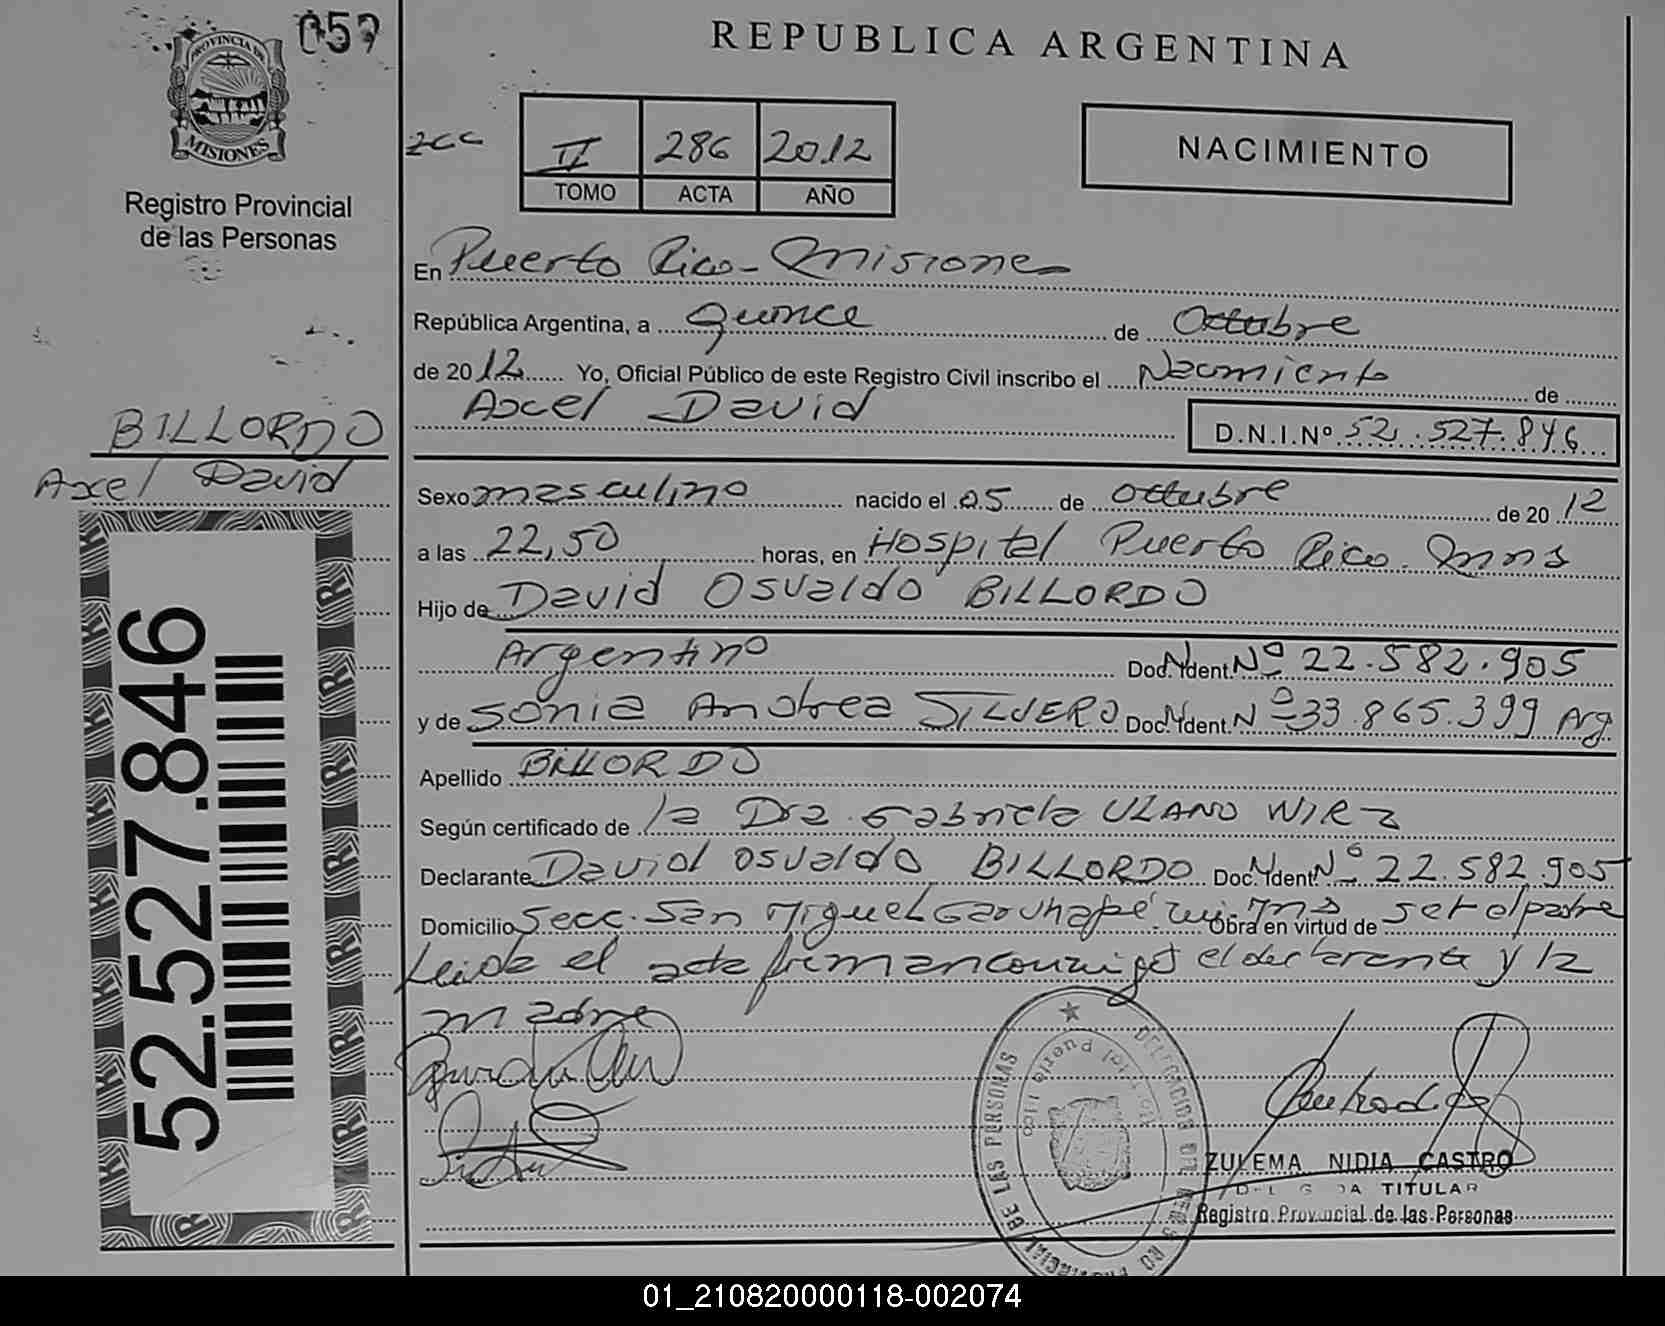 059
PROVINCIA DE
MISIONES
Registro Provincial
de las Personas
REPUBLICA ARGENTINA
II 286 2012
TOMO ACTA AÑO
NACIMIENTO
En Puerto Rico - Misiones
República Argentina, a quince de Octubre
de 2012 Yo, Oficial Público de este Registro Civil inscribo el Nacimiento de
Axel David D.N.I.Nº 52.527.846
BILLORDO
Axel David
Sexo masculino nacido el 05 de octubre de 2012
a las 22,50 horas, en Hospital Puerto Rico. Mns
Hijo de David Osvaldo BILLORDO
Argentino Doc. Ident. Nº 22.582.905
y de Sonia Andrea SILVERO Doc. Ident. Nº 33.865.399 Arg.
Apellido BILLORDO
Según certificado de la Dra. Gabriela ULANO WIRZ
Declarante David Osvaldo BILLORDO Doc. Ident. Nº 22.582.905
Domicilio Secc. San Miguel Garuhapé Mns Obra en virtud de ser el padre
Leida el acta firman conmigo el declarante y la
madre
52.527.846
DE LAS PERSONAS
ZULEMA NIDIA CASTRO
TITULAR
Registro Provincial de las Personas
01_210820000118-002074